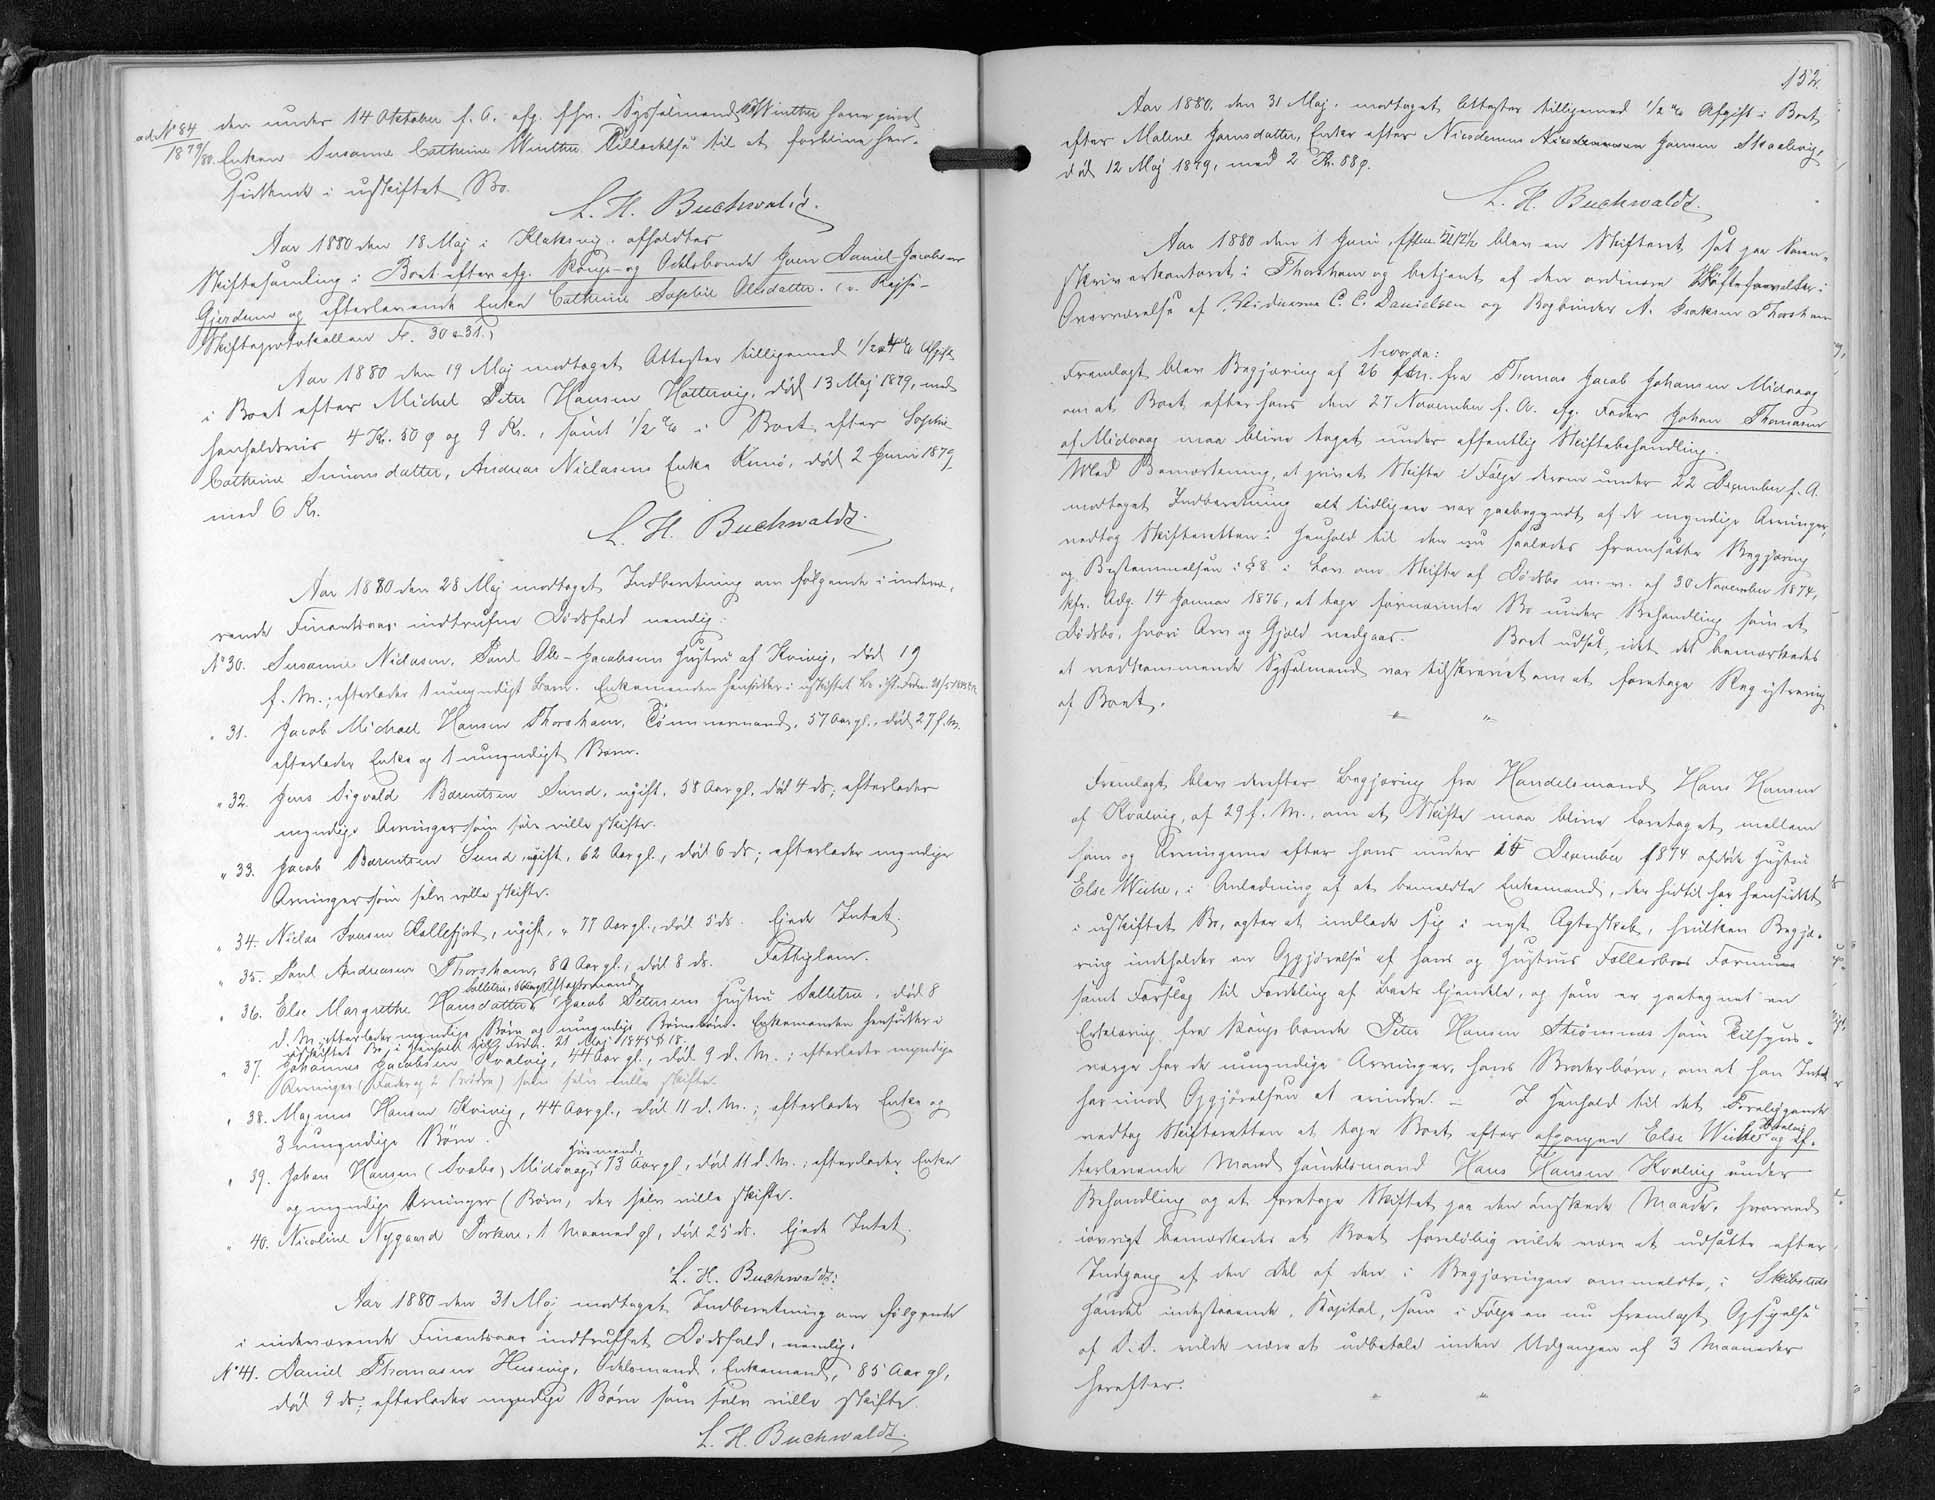 ad N° 84 den under 14 Oktober f. A. afg. fhv. Sysselmand Winther have givet
1879/80. Enken Susanne Cathrine Winther Tilladelse til at forblive hen-
siddende i uskiftet Bo.
L. H. Buchwaldt.
Aar 1880 den 18 Maj i Klaksvig afholdtes
Skiftesamling i Boet efter afg. Konge- og Odelsbonde Joen Daniel Jacobsen
Gjerdum og efterlevende Enke Cathrine Sophie Olesdatter. (v. Rejse-
Skifteprotokollen Fr. 30 a 31.)
Aar 1880 den 19 Maj modtaget Attester tilligemed 1/2 a 4 % Afgift
i Boet efter Michel Peter Hansen Hattervig, død 13 Maj 1879, med
henholdsvis 4 Kr. 50 ø og 9 Kr., samt 1/2 % i Boet efter Sophie
Cathrine Simonsdatter, Andreas Niclasens Enke Kunø, død 2 Juni 1879,
med 6 Kr.
L. H. Buchwaldt.
Aar 1880 den 28 Maj modtaget Indberetning om følgende i indevæ-
rende Finantsaar indtrufne Dødsfald nemlig:
N° 30. Susanne Niclasen, Poul Ole-Jacobsens Hustru af Kvivig, død 19
f. M.; efterlader 1 umyndigt Barn. Enkemanden hensidder i uskiftet Bo
" 31. Jacob Michael Hansen Thorshavn, Tømmermand, 57 Aar gl., død 27 f. M.
efterlader Enke og 1 umyndigt Barn.
" 32. Jens Sigvald Bærentsen Sund, ugift, 58 Aar gl., død 4 ds; efterlader
myndige Arvinger som selv ville skifte.
" 33. Jacob Bærentsen Sund, ugift, 62 Aar gl., død 6 ds; efterlader myndige
Arvinger som selv ville skifte.
" 34. Niclas Poulsen Kollefjord, ugift, 77 Aar gl., død 5 ds. Ejede Intet.
" 35. Poul Andreasen Thorshavn, 80 Aar gl., død 8 ds. Fattiglem.
" 36. Else Margrethe Hansdatter, Jacob Petersens Hustru Selletræ, død 8
d. M. efterlader myndige Børn og umyndige Børnebørn. Enkemanden hensidder i
uskiftet Bo i Henhold til Frdn. 21 Maj 1845 § 18.
" 37. Johannes Jacobsen Kvalvig, 44 Aar gl., død 9 d. M.; efterlader myndige
Arvinger (Fader og 2 Brødre) som selv ville skifte.
" 38. Magnus Hansen Kvivig, 44 Aar gl., død 11 d. M.; efterlader Enke og
3 umyndige Børn.
Husmand,
" 39. Johan Hansen (Svabo) Midvaag, 73 Aar gl., død 11 d. M.; efterlader Enke
og myndige Arvinger (Børn, der selv ville skifte.
" 40. Nicoline Nygaard Porkere, 1 Maaned gl., død 25 ds. Ejede Intet.
L. H. Buchwaldt.
Aar 1880 den 31 Maj modtaget Indberetning om følgende
i indeværende Finantsaar indtruffet Dødsfald, nemlig:
N° 41. Daniel Thomasen Husevig, Odelsmand, Enkemand, 85 Aar gl,
død 9 ds; efterlader myndige Børn som selv ville skifte.
L. H. Buchwaldt.
152.
Aar 1880, den 31 Maj, modtaget Attester tilligemed 1/2 % Afgift i Boet
efter Malene Joensdatter, Enke efter Nicodemus Joensen Skaalevig,
død 12 Maj 1879, med 2 Kr. 88 ø.
L. H. Buchwaldt.
Aar 1880 den 1 Juni, Efterm. Kl 12 1/2 blev en Skifteret sat paa Soren-
skriverkontoret i Thorshavn og betjent af den ordinære Skifteforvalter i
Overværelse af Vidnerne C. C. Danielsen og Bogbinder A. Isaksen Thorshavn
Hvorda:
Fremlagt blev Begjæring af 26 f. M. fra Thomas Jacob Johansen Midvaag
om at Boet efter hans den 27 November f. A. afg. Fader Johan Thomasen
af Midvaag maa blive taget under offentlig Skiftebehandling.
Med Bemærkning, at privat Skifte i Følge derom under 22 December f. A.
modtaget Indberetning alt tidligere var paabegyndt af de myndige Arvinger,
vedtog Skifteretten i Henhold til den nu saaledes fremsatte Begjæring
og Bestemmelsen i § 8 i Lov om Skifte af Dødsbo m. v. af 30 November 1874,
kfr. Adg. 14 Januar 1876, at tage fornævnte Bo under Behandling som et
Dødsbo, hvori Arv og Gjæld vedgaas. Boet udsat, idet det bemærkedes
at vedkommende Sysselmand var tilskrevet om at foretage Registrering
af Boet.
Fremlagt blev derefter Begjæring fra Handelsmand Hans Hansen
af Kvalvig, af 29 f. M., om at Skifte maa blive foretaget mellem
ham og Arvingerne efter hans under 15 December 1874 afdøde Hustru
Else Wiche, i Anledning af at bemeldte Enkemand, der hidtil har hensiddet
i uskiftet Bo, agter at indlade sig i nyt Ægteskab, hvilken Begjæ-
ring indeholder en Opgjørelse af hans og Hustrus Fællesboes Formue
samt Forslag til Fordeling af Boets Ejendele, og som er paategnet en
Erklæring fra Kongsbonde Peter Hansen Strømnæs som Tilsyns-
værge for de umyndige Arvinger, hans Broderbørn, om at han Intet
har imod Opgjørelsen at erindre. – I Henhold til det Foreliggende
vedtog Skifteretten at tage Boet efter afgangne Else Wiche Kvalvig og ef-
terlevende Mand Handelsmand Hans Hansen Kvalvig under
Behandling og at foretage Skiftet paa den ønskede Maade, hvorved
iøvrigt bemærkedes at Boet foreløbig vilde være at udsætte efter
Indgang af den Del af den i Begjæringen ommeldte, i Skibsteds
Handel indestaaende, Kapital, som i Følge en nu fremlagt Opsigelse
af D. D. vilde være at udbetale inden Udgangen af 3 Maaneder
herefter.